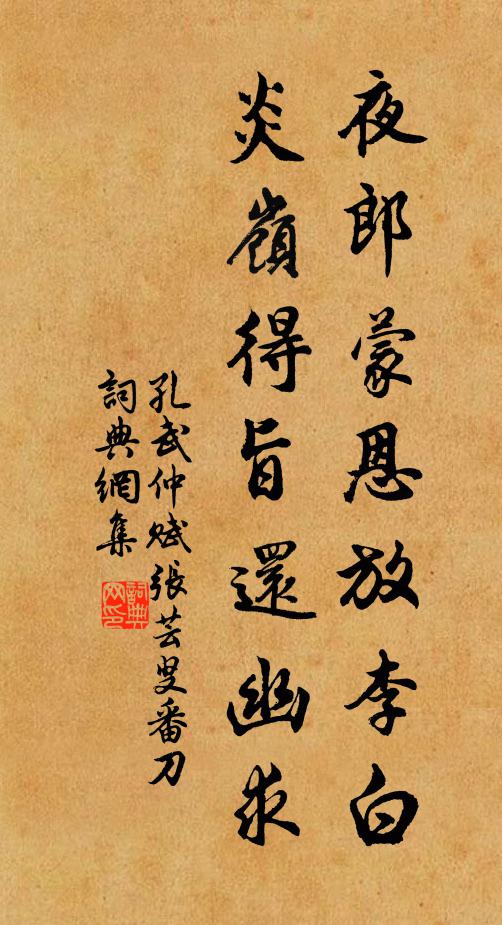 夜郎蒙恩放李白
炎嶺得旨還幽求
孔武仲賦張芸叟番刀
詞典網集
詞典網印